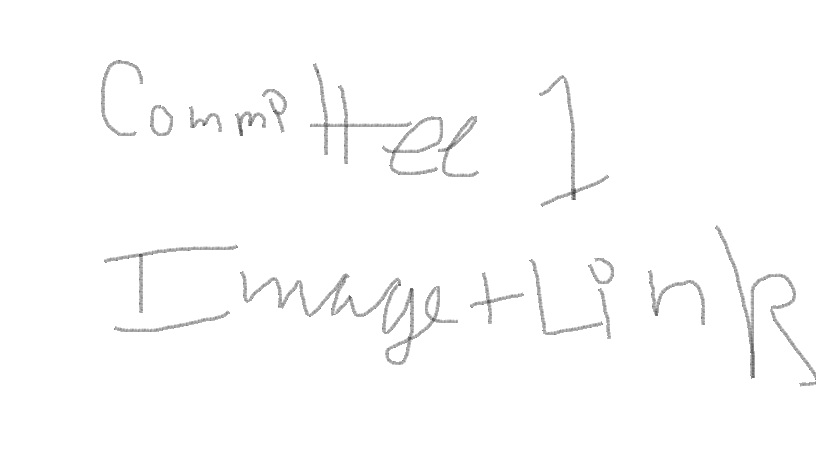 Committee 1
Image+Link